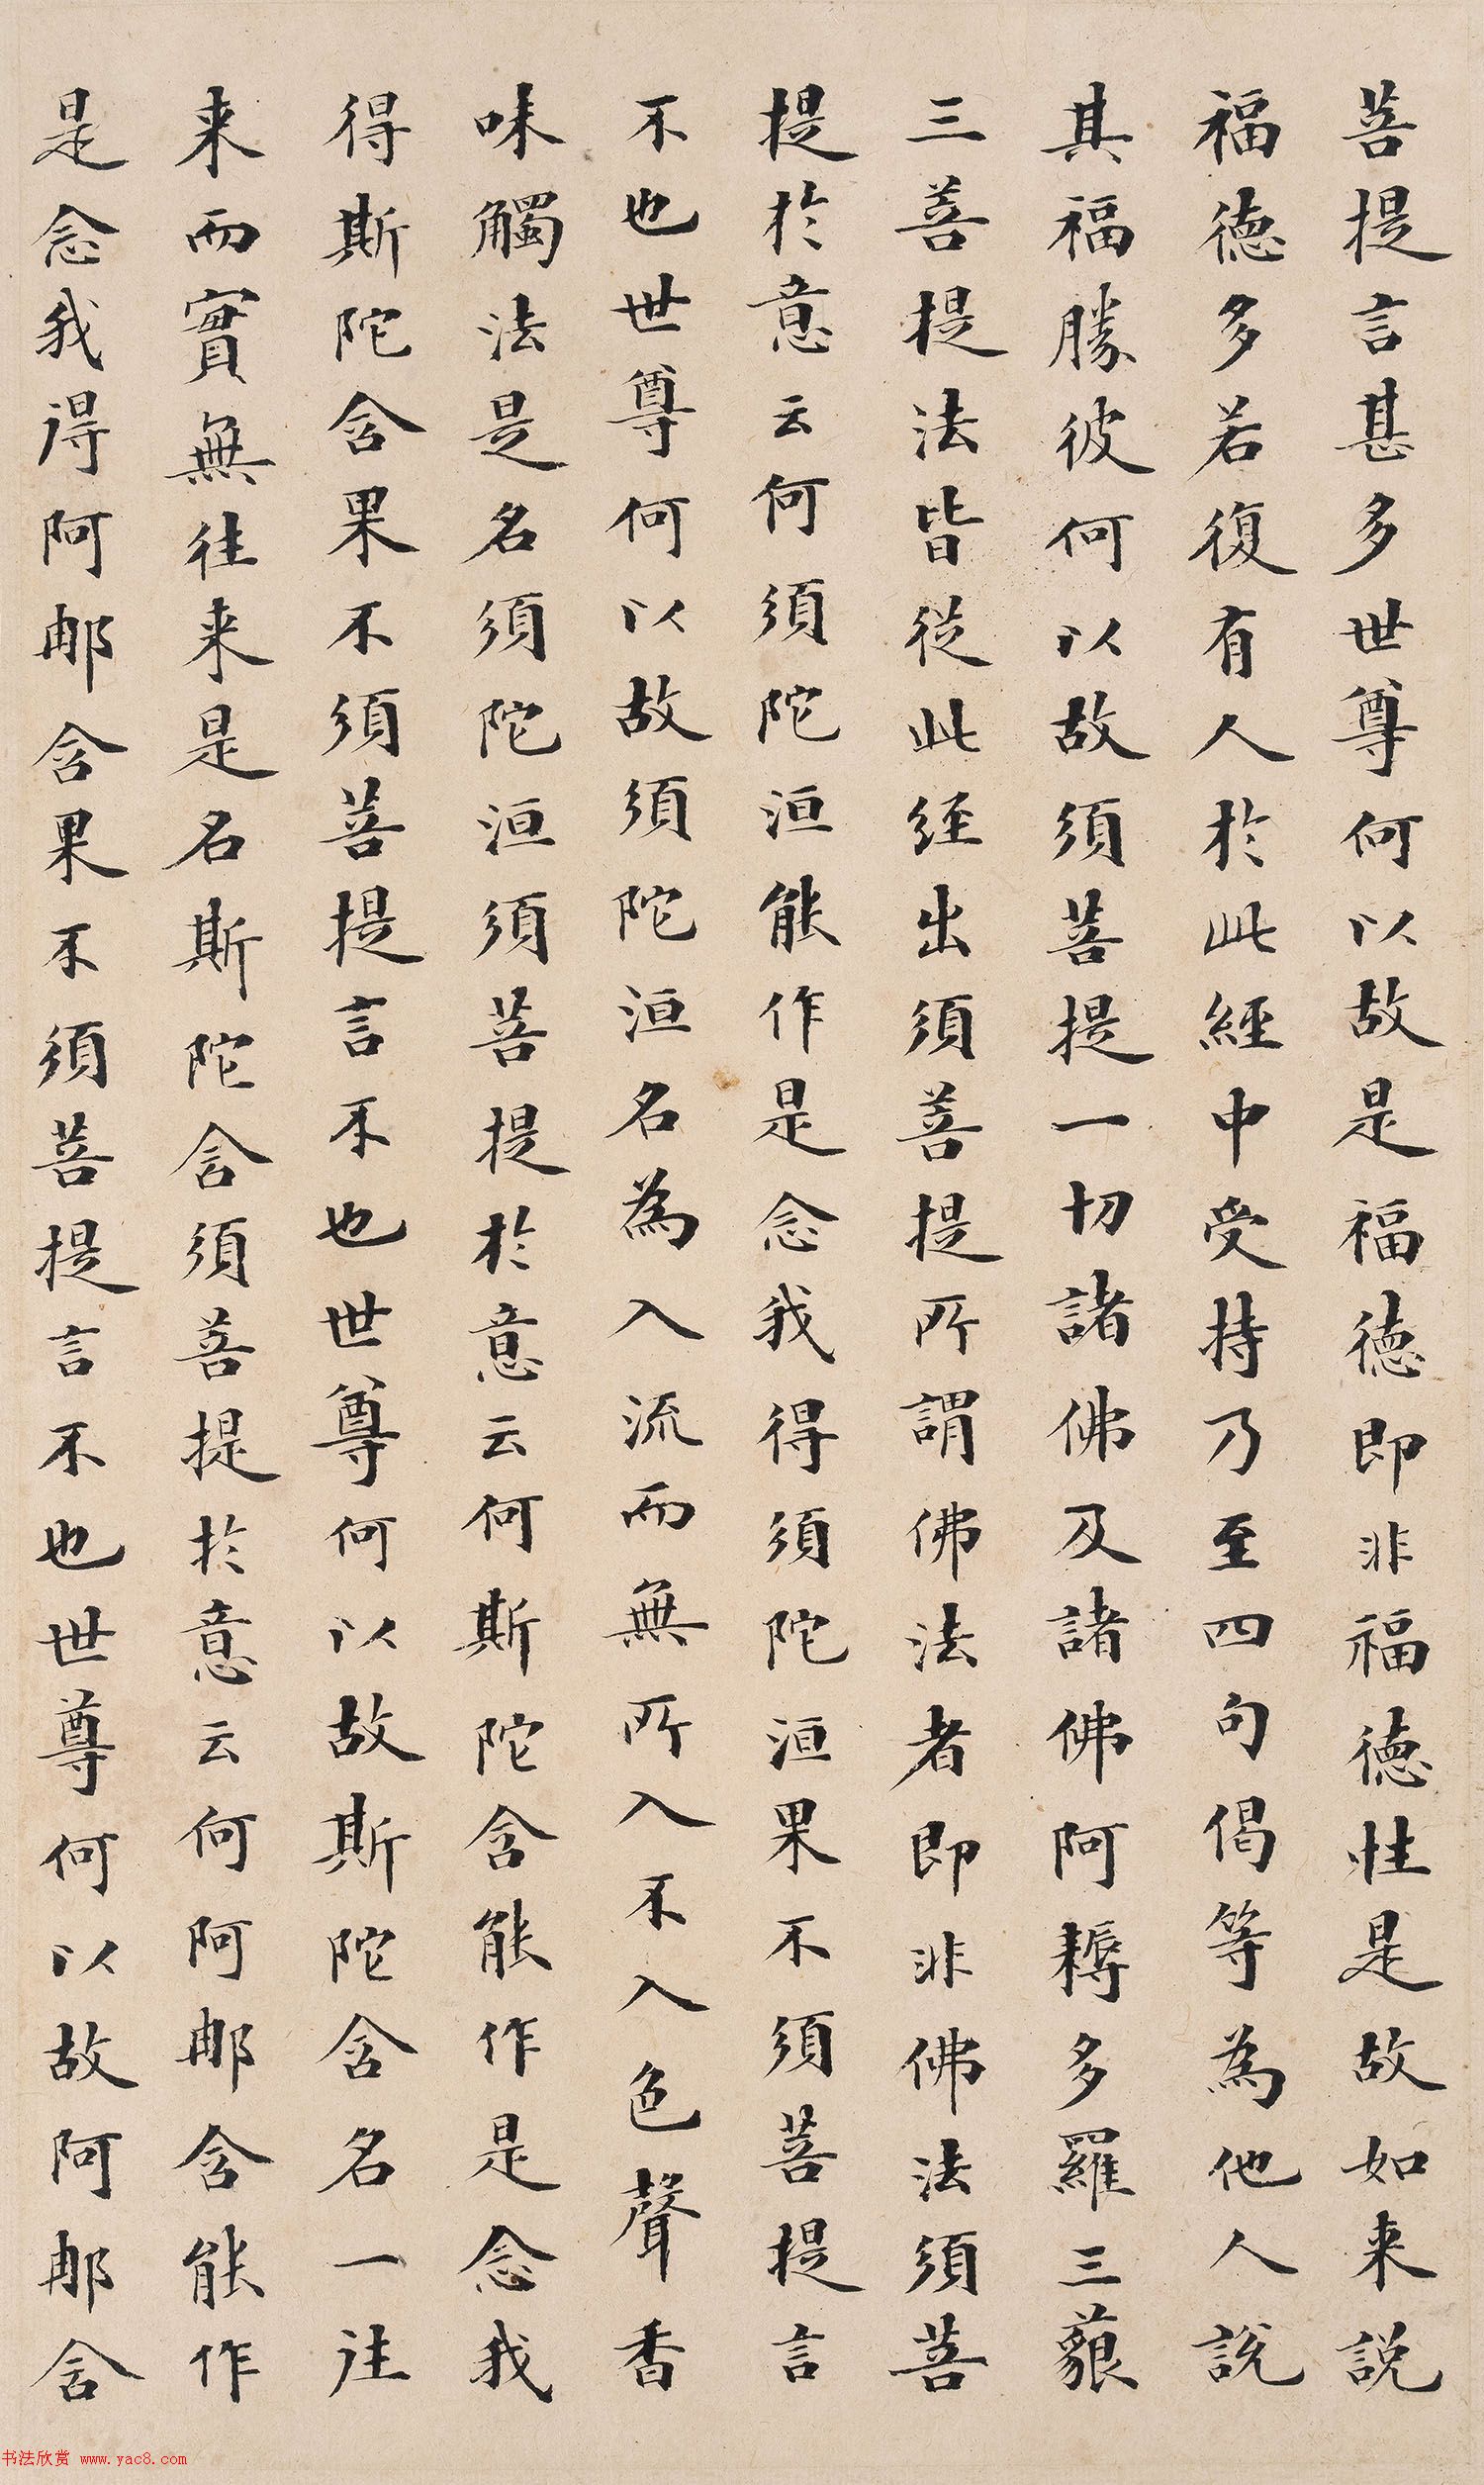 菩提言甚多世尊何以故是福德即非福德性是故如来説
福德多若復有人於此經中受持乃至四句偈等為他人説
其福勝彼何以故須菩提一切諸佛及諸佛阿耨多羅三藐
三菩提法皆從此經出須菩提所謂佛法者即非佛法須菩
提於意云何須陀洹能作是念我得須陀洹果不須菩提言
不也世尊何以故須陀洹名為入流而無所入不入色聲香
味觸法是名須陀洹須菩提於意云何斯陀含能作是念我
得斯陀含果不須菩提言不也世尊何以故斯陀含名一往
来而實無往来是名斯陀含須菩提於意云何阿那含能作
是念我得阿那含果不須菩提言不也世尊何以故阿那含
书法欣赏 www.yac8.com